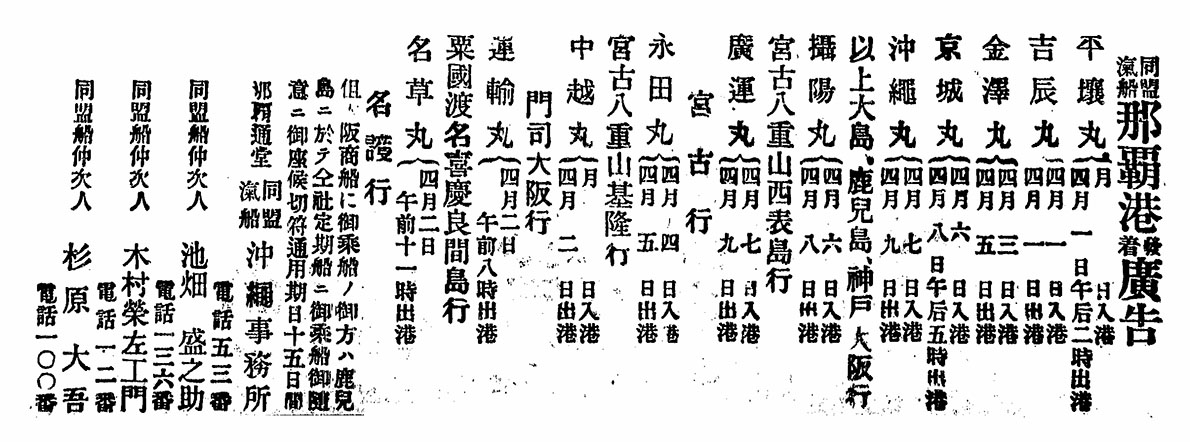 同盟汽船那覇港發着廣告
平壤丸 月 日入港
四月一日午后二時出港
吉辰丸 四月一日入港
四月一日出港
金澤丸 四月三日入港
四月五日出港
京城丸 四月六日入港
四月八日午后五時出港
沖繩丸 四月七日入港
四月九日出港
以上大島、鹿兒島、神戸、大阪行
攝陽丸 四月六日入港
四月八日出港
宮古八重山西表島行
廣運丸 四月七日入港
四月九日出港
宮古行
永田丸 四月四日入港
四月五日出港
宮古八重山基隆行
中越丸 月 日入港
四月二日出港
門司大阪行
運輸丸 四月二日
午前八時出港
粟國渡名喜慶良間島行
名草丸 四月二日
午前十一時出港
名護行
但大阪商船に御乘船ノ御方ハ鹿兒
島ニ於テ仝社定期船ニ御乘船御隨
意ニ御座候切符通用期日十五日間
那覇通堂 同盟汽船 沖繩事務所
電話五三番
同盟船仲次人 池畑盛之助
電話一三六番
同盟船仲次人 木村榮左工門
電話一二番
同盟船仲次人 杉原大吾
電話一〇〇番